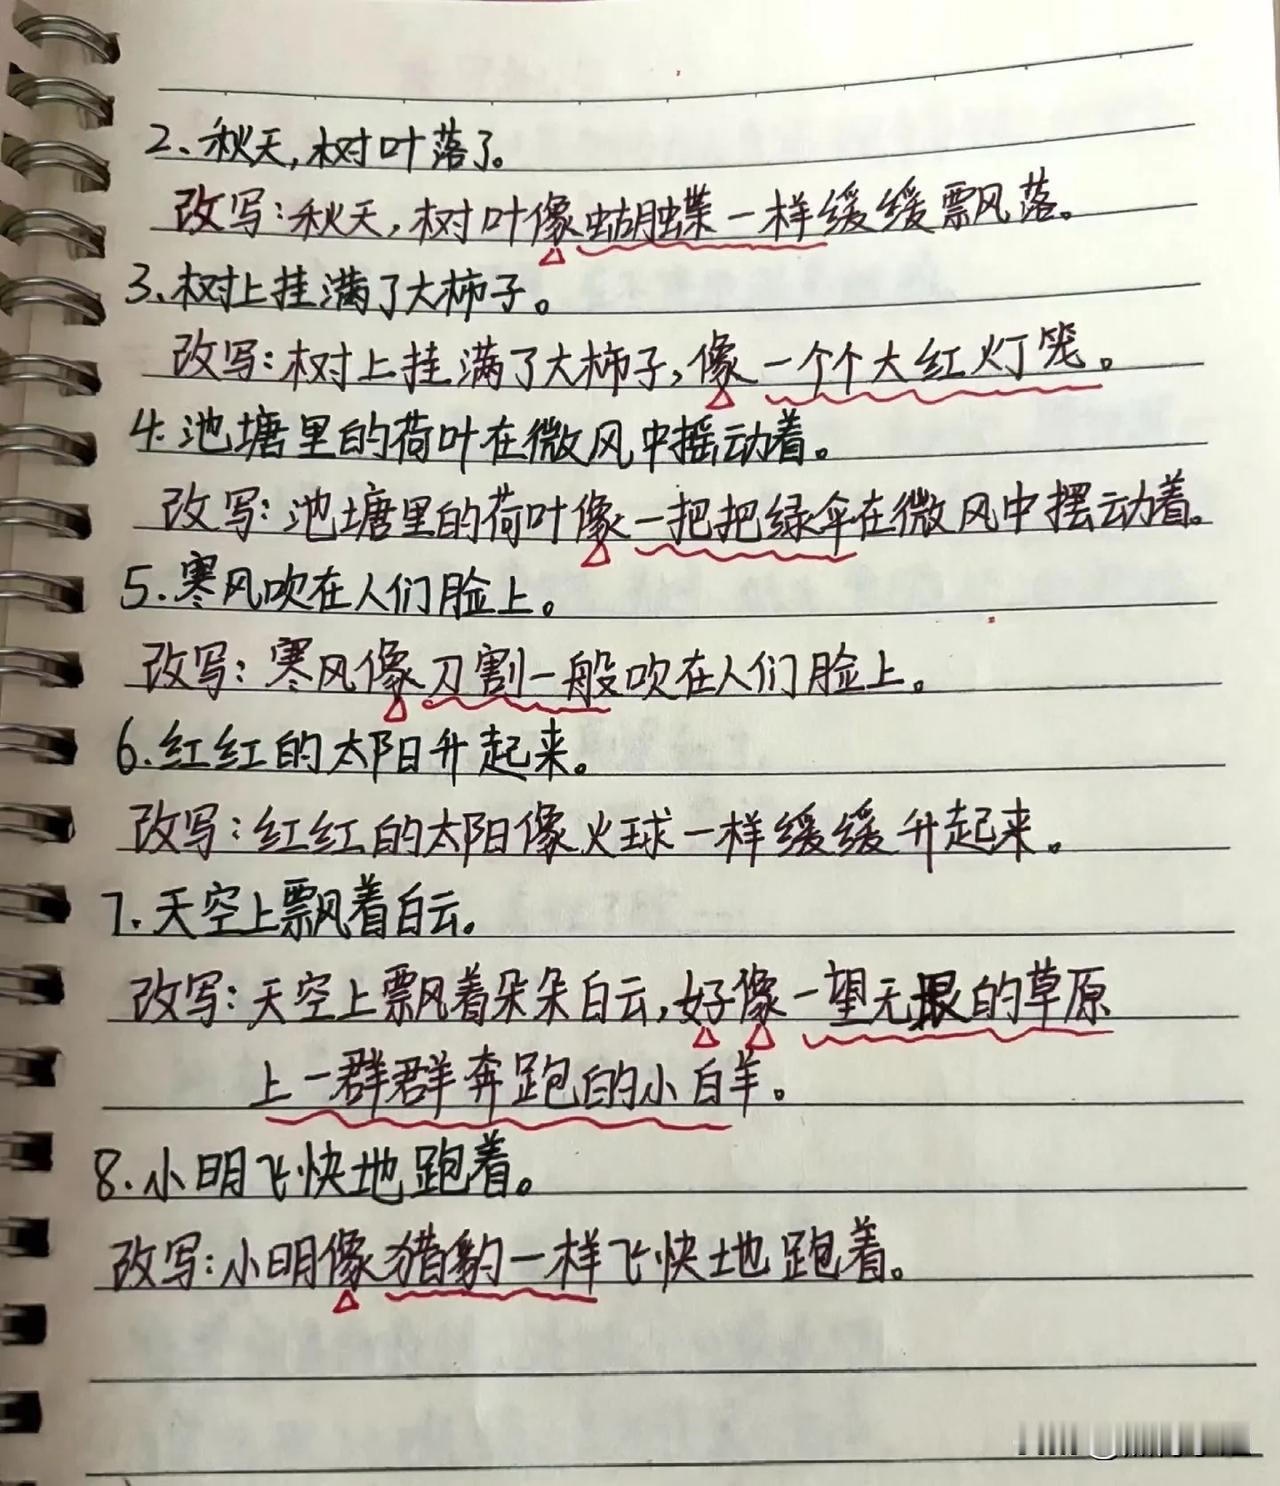 2、秋天,树叶落了。
改写:秋天,树叶像蝴蝶一样缓缓飘落。
3、树上挂满了大柿子。
改写:树上挂满了大柿子,像一个个大红灯笼。
4.池塘里的荷叶在微风中摇动着。
改写:池塘里的荷叶像一把把绿伞在微风中摆动着。
5.寒风吹在人们脸上。
改写:寒风像刀割一般吹在人们脸上。
6.红红的太阳升起来。
改写:红红的太阳像火球一样缓缓升起来。
7.天空上飘着白云。
改写:天空上飘着朵朵白云,好像一望无限的草原
上一群群奔跑的小白羊。
8.小明飞快地跑着。
改写:小明像猎豹一样飞快地跑着。